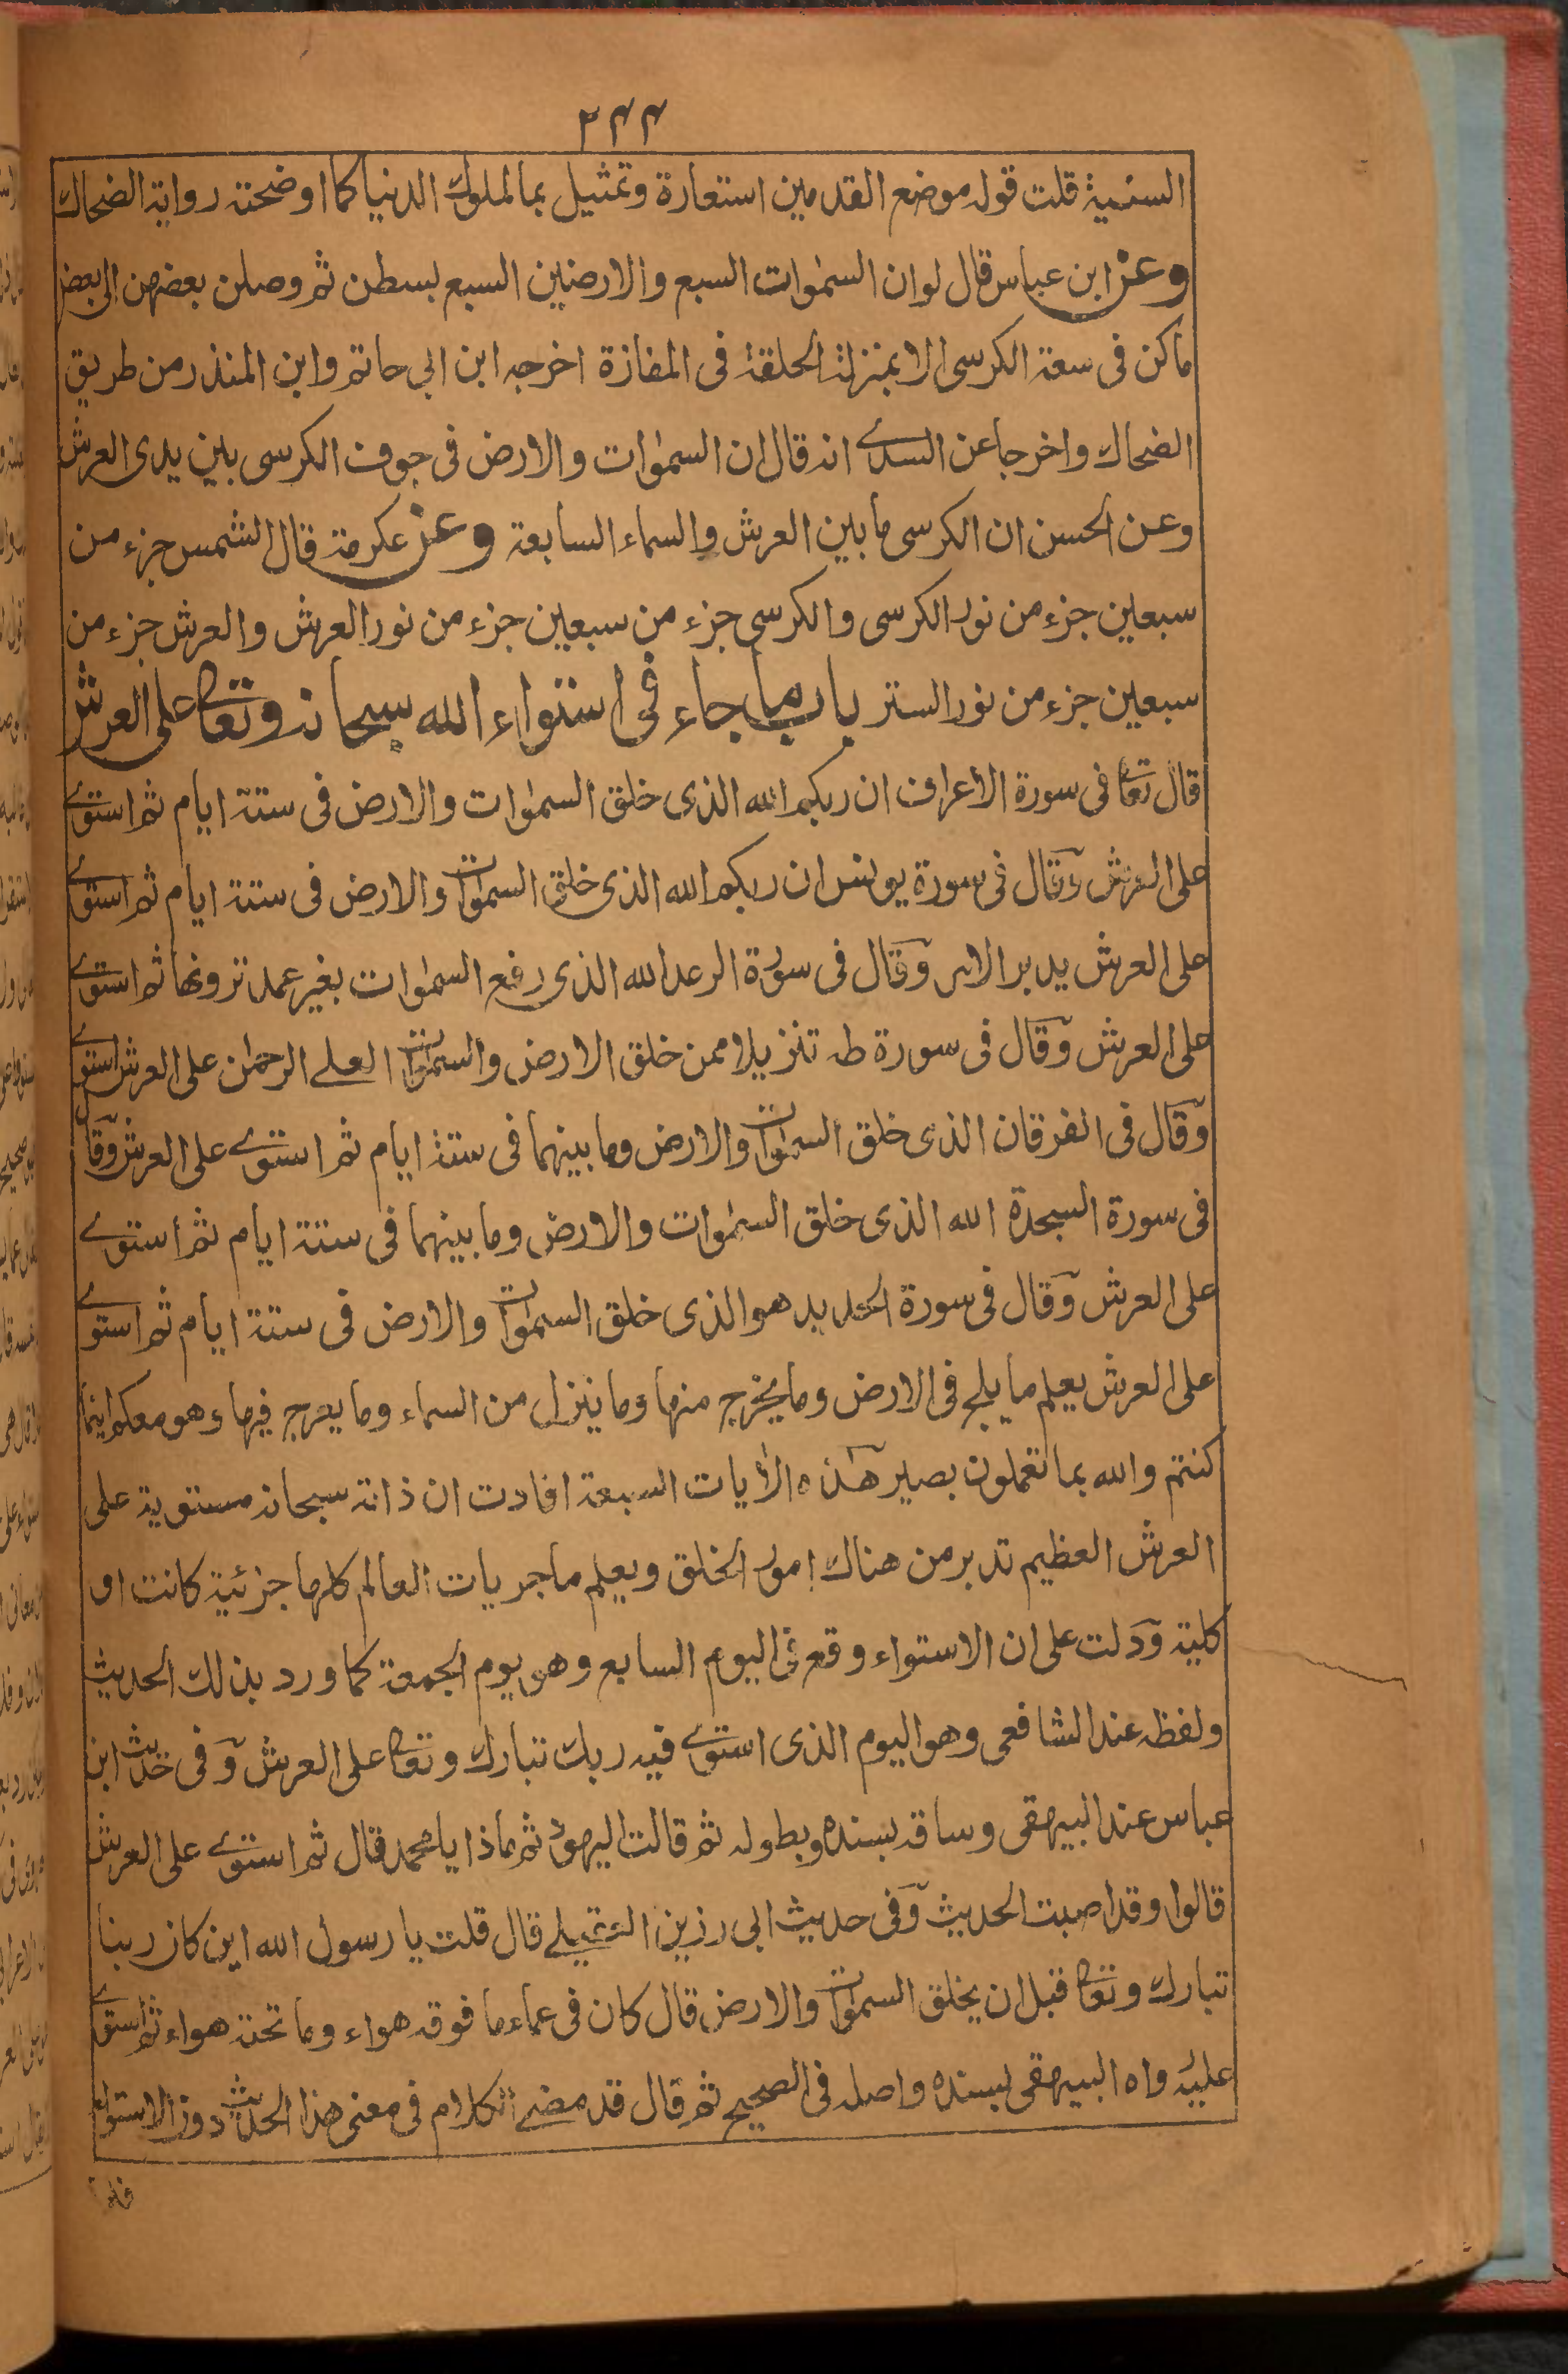 ٢٤٤
السنية قلت قوله موضع القدمين استعارة وتمثيل بما لملوك الدنيا كما اوضحته رواية الضحاك
وعن ابن عباس قال لو ان السمٰوات السبع والارضين السبع بسطن ثم وصلن بعضهن الى بعض
ما كن فى سعة الكرسى الا بمنزلة الحلقة فى المفازة اخرجه ابن ابى حاتم وابن المنذر من طريق
الضحاك واخرجا عن السدے انه قال ان السمٰوات والارض فى جوف الكرسى بين يدى العرش
وعن الحسن ان الكرسى ما بين العرش والسماء السابعة وعن عكرمة قال الشمس جزء من
سبعين جزء من نور الكرسى والكرسى جزء من سبعين جزء من نور العرش والعرش جزء من
سبعين جزء من نور الستر باب ما جاء فى استواء الله سبحانه وتعا على العرش
قال تعا فى سورة الاعراف ان ربكم الله الذى خلق السمٰوات والارض فى ستة ايام ثم استوے
على العرش وقال فى سورة يونس ان ربكم الله الذى خلق السمٰوات والارض فى ستة ايام ثم استوے
على العرش يدبر الامر وقال فى سورة الرعد الله الذى رفع السمٰوات بغير عمد ترونها ثم استوے
على العرش وقال فى سورة طه تنزيلا ممن خلق الارض والسمٰوات العلے الرحمٰن على العرش استوے
وقال فى الفرقان الذى خلق السمٰوات والارض وما بينهما فى ستة ايام ثم استوے على العرش وقال
فى سورة السجدة الله الذى خلق السمٰوات والارض وما بينهما فى ستة ايام ثم استوے
على العرش وقال فى سورة الحديد هو الذى خلق السمٰوات والارض فى ستة ايام ثم استوے
على العرش يعلم ما يلج فى الارض وما يخرج منها وما ينزل من السماء وما يعرج فيها وهو معكم اينما
كنتم والله بما تعملون بصير هذه الأيات السبعة افادت ان ذاته سبحانه مستوية على
العرش العظيم تدبر من هناك امور الخلق ويعلم ماجريات العالم كلها جزئية كانت او
كلية ودلت على ان الاستواء وقع فى اليوم السابع وهو يوم الجمعة كما ورد بذلك الحديث
ولفظه عند الشافعى وهو اليوم الذى استوے فيه ربك تبارك وتعا على العرش وفى حديث ابن
عباس عند البيهقى وساقه بسنده وبطوله ثم قالت اليهود ثم ماذا يا محمد قال ثم استوے على العرش
قالوا وقد اصبت الحديث وفى حديث ابى رزين العقيلے قال قلت يا رسول الله اين كان ربنا
تبارك وتعا قبل ان يخلق السمٰوات والارض قال كان فى عماء ما فوقه هواء وما تحته هواء ثم استوے
عليه رواه البيهقى بسنده واصله فى الصحيح ثم قال قد مضے الكلام فى معنى هذا الحديث دون الاستواء